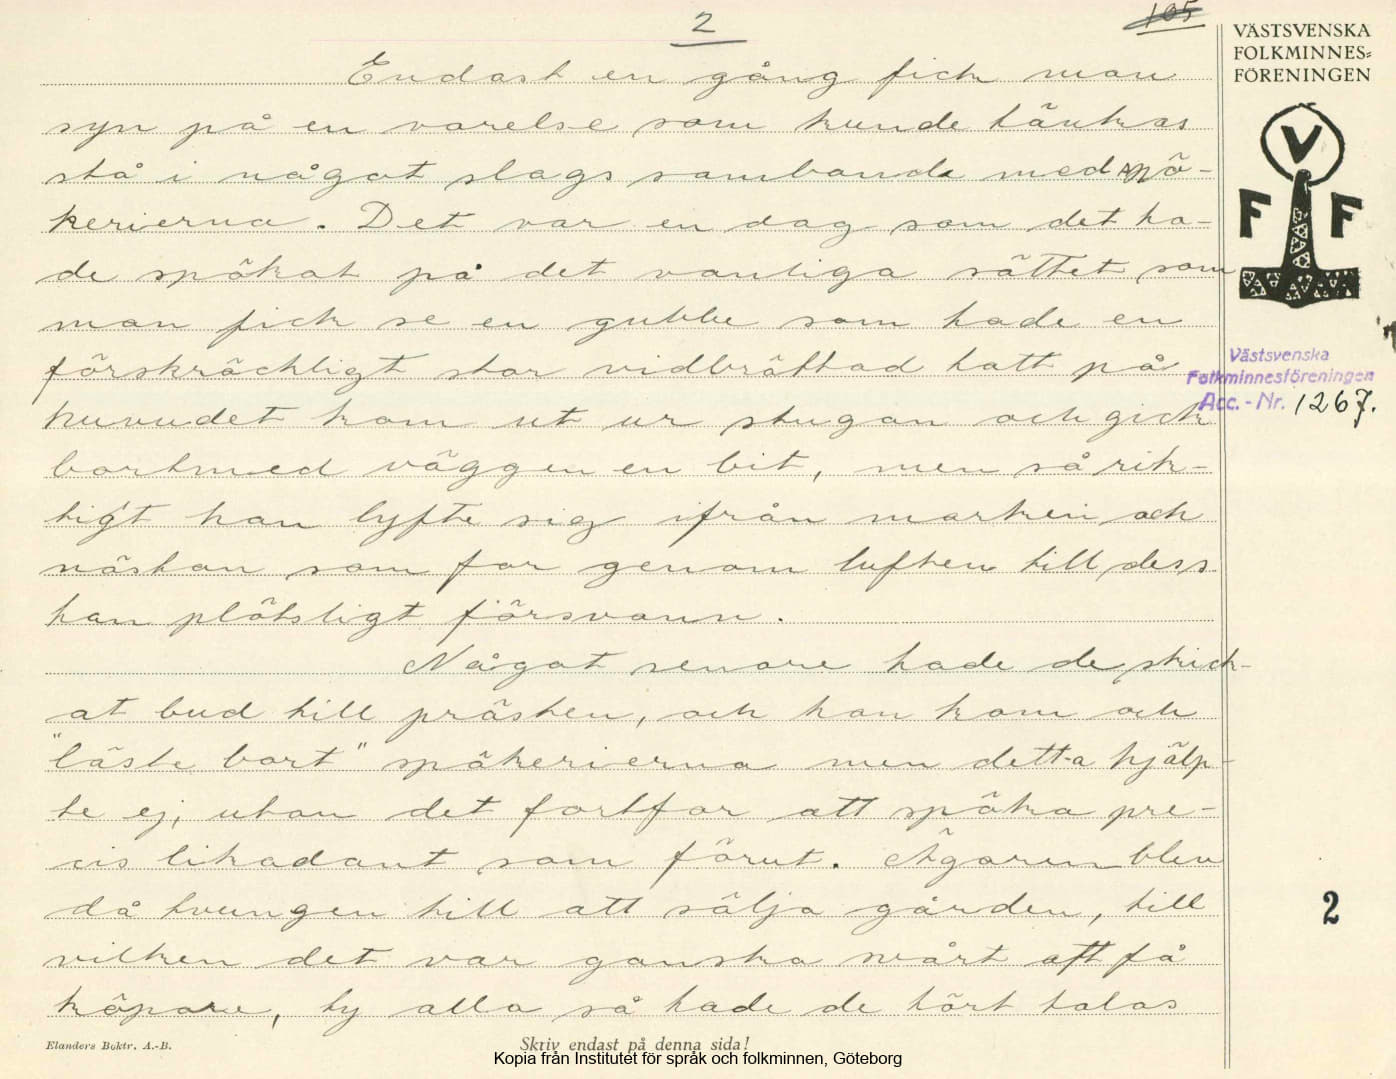 2
105
VÄSTSVENSKA
FOLKMINNES-
FÖRENINGEN
V
F F
Endast en gång fick man
syn på en varelse som kunde tänkas
stå i något slags sambande med spö-
kerierna. Det var en dag som det ha-
de spökat på det vanliga sättet som
man fick se en gubbe som hade en
förskräckligt stor vidbrättad hatt på
huvudet kom ut ur stugan och gick
bortmed väggen en bit, men så rik-
tigt han lyfte sig ifrån marken och
nästan som for genom luften till dess
han plötsligt försvann.
Något senare hade de skick-
at bud till prästen, och han kom och
"läste bort" spökerierna men detta hjälp-
te ej, utan det fortfor att spöka pre-
cis likadant som förut. Ägaren blev
då tvungen till att sälja gården, till
vilken det var ganska svårt att få
köpare, ty alla så hade de hört talas
Västsvenska
Folkminnesföreningen
Acc.-Nr. 1267.
2
Elanders Boktr. A.-B.
Skriv endast på denna sida!
Kopia från Institutet för språk och folkminnen, Göteborg